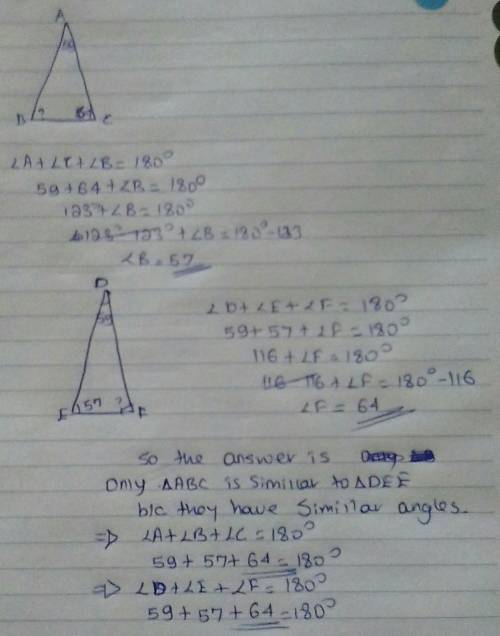 A
59
B ? 64 C
∠A+∠C+∠B= 180°
59+64+∠B= 180°
123+∠B= 180°
123°-123°+∠B=180°-123
∠B= 57
D
59
E 57 ? F
∠D+∠E+∠F= 180°
59+57+∠F=180°
116+∠F=180°
116-116+∠F=180°-116
∠F= 64
So the answer is
Only △ABC is Simillar to △DEF
b/c they have Simillar angles.
⇒ ∠A+∠B+∠C=180°
59+57+64=180°
⇒ ∠D+∠E+∠F=180°
59+57+64=180°